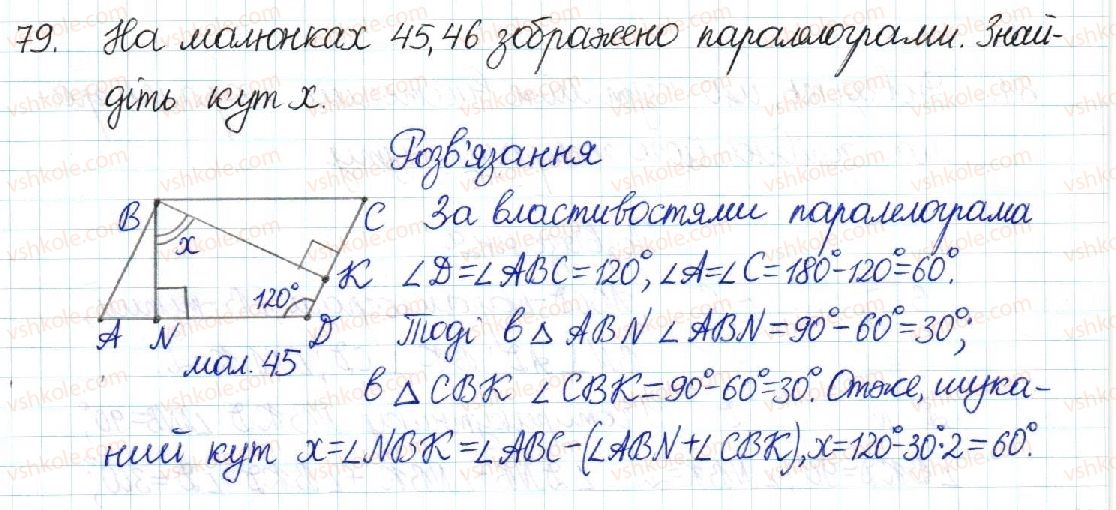 79. На малюнках 45, 46 зображено паралелограми. Знай-
діть кут x.
Розв'язання
B C За властивостями паралелограма
x
K ∠D=∠ABC=120°, ∠A=∠C=180°-120°=60°.
120°
A N D Тоді в △ABN ∠ABN=90°-60°=30°;
мал. 45
в △CBK ∠CBK=90°-60°=30°. Отже, шука-
ний кут x=∠NBK=∠ABC-(∠ABN+∠CBK), x=120°-30°·2=60°.
vshkole.com